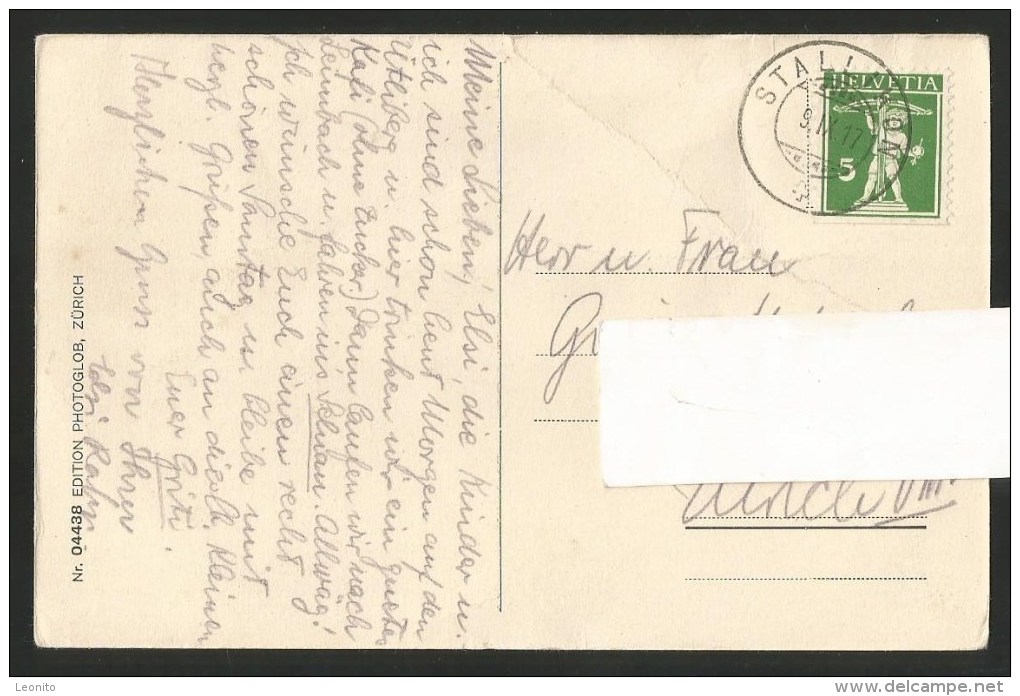 Meine Lieben, Elsi, die Kinder u.
ich sind schon heut Morgen auf den
Ütliberg u. hier trinken wir ein guetes
Kafi (ohne Zucker) dann laufen wir nach
Leimbach u. fahren ins Schnan. Allwäg!
Ich wünsche Euch einen recht
schönen Sonntag u. bleibe mit
herzl. Grüßen, auch an die kleinen
Euer Griti.
Herzlichen Gruss von Ihrer
Elsi
Nr. 04438 EDITION PHOTOGLOB, ZÜRICH
STALLIKON
9.IX.17
HELVETIA
5
Herr u. Frau
Zürich VIII
Leonito
delcampe.net